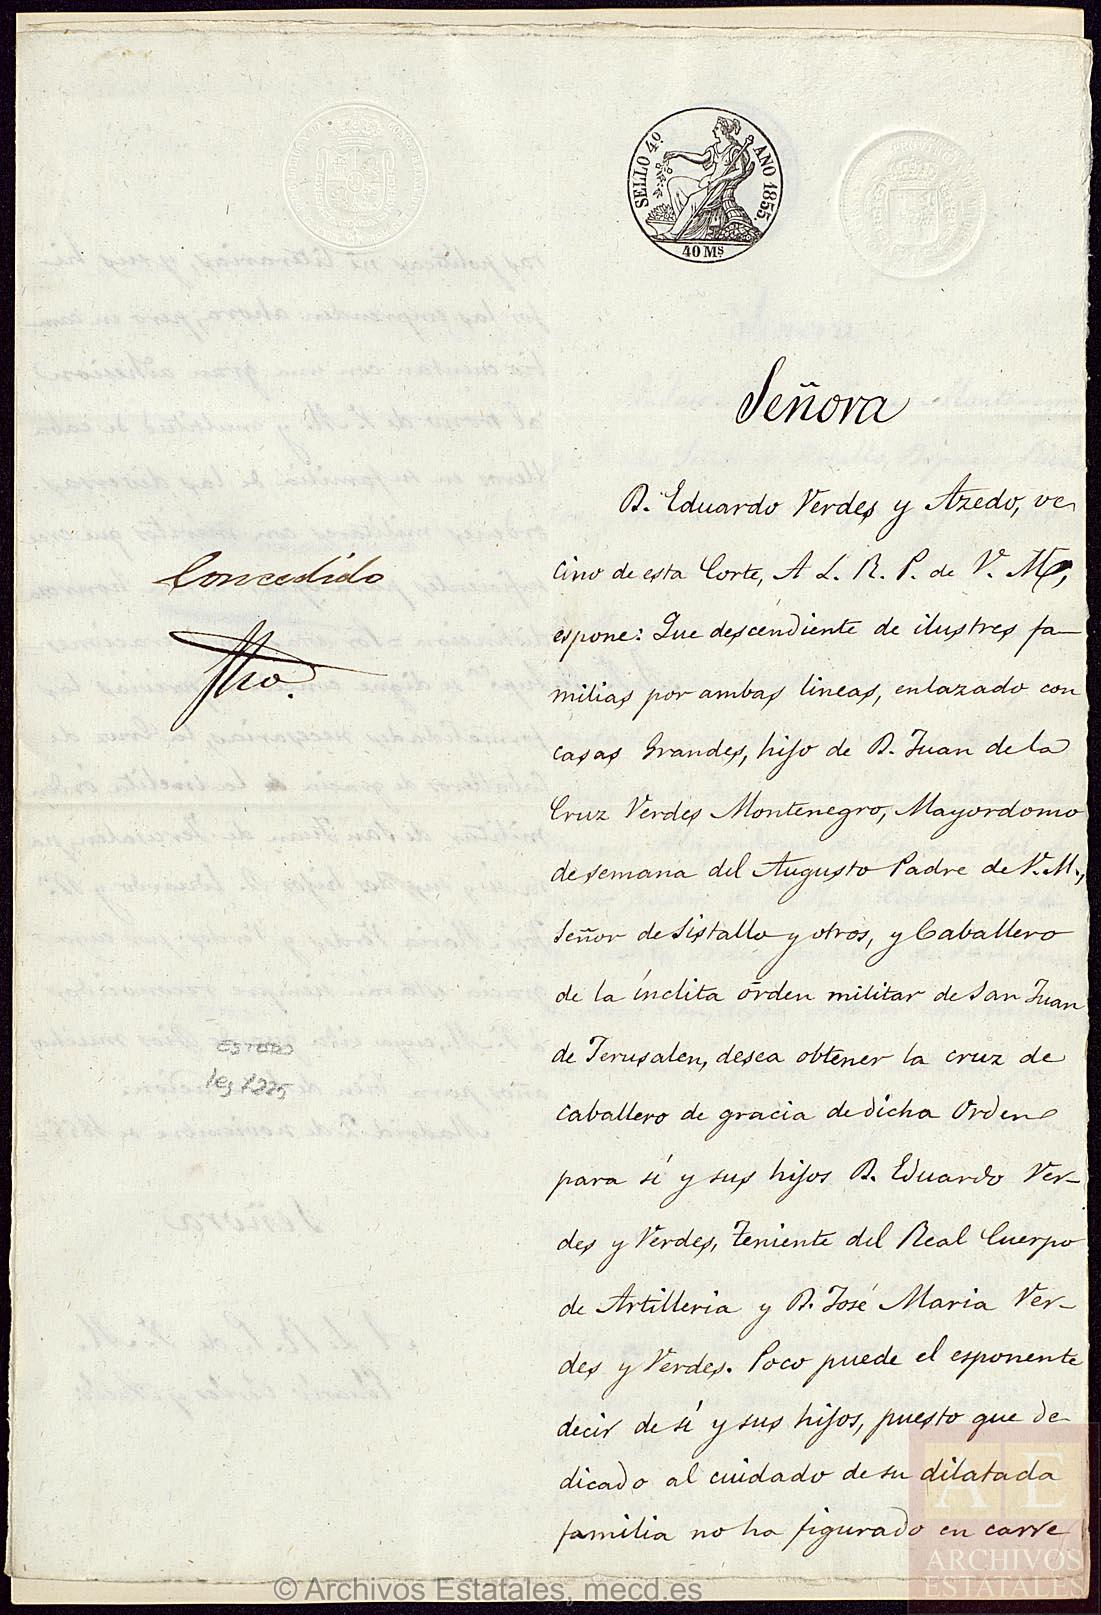 SELLO 4º AÑO 1855.
40 Ms
Señora
Concedido
D. Eduardo Verdes y Azedo, ve-
cino de esta Corte, A L. R. P. de V. M,
espone: Que descendiente de ilustres fa-
milias por ambas lineas, enlazado con
casas Grandes, hijo de D. Juan de la
Cruz Verdes Montenegro, Mayordomo
de semana del Augusto Padre de V. M.,
Señor de Sistallo y otros, y Caballero
de la ínclita órden militar de San Juan
de Jerusalen, desea obtener la cruz de
caballero de gracia de dicha Orden
para sí y sus hijos D. Eduardo Ver-
des y Verdes, Teniente del Real Cuerpo
de Artilleria y D. José Maria Ver-
des y Verdes. Poco puede el esponente
decir de sí y sus hijos, puesto que de-
dicado al cuidado de su dilatada
familia no ha figurado en carre
ESTADO
leg 7225
AE
ARCHIVOS
ESTATALES
© Archivos Estatales, mecd.es